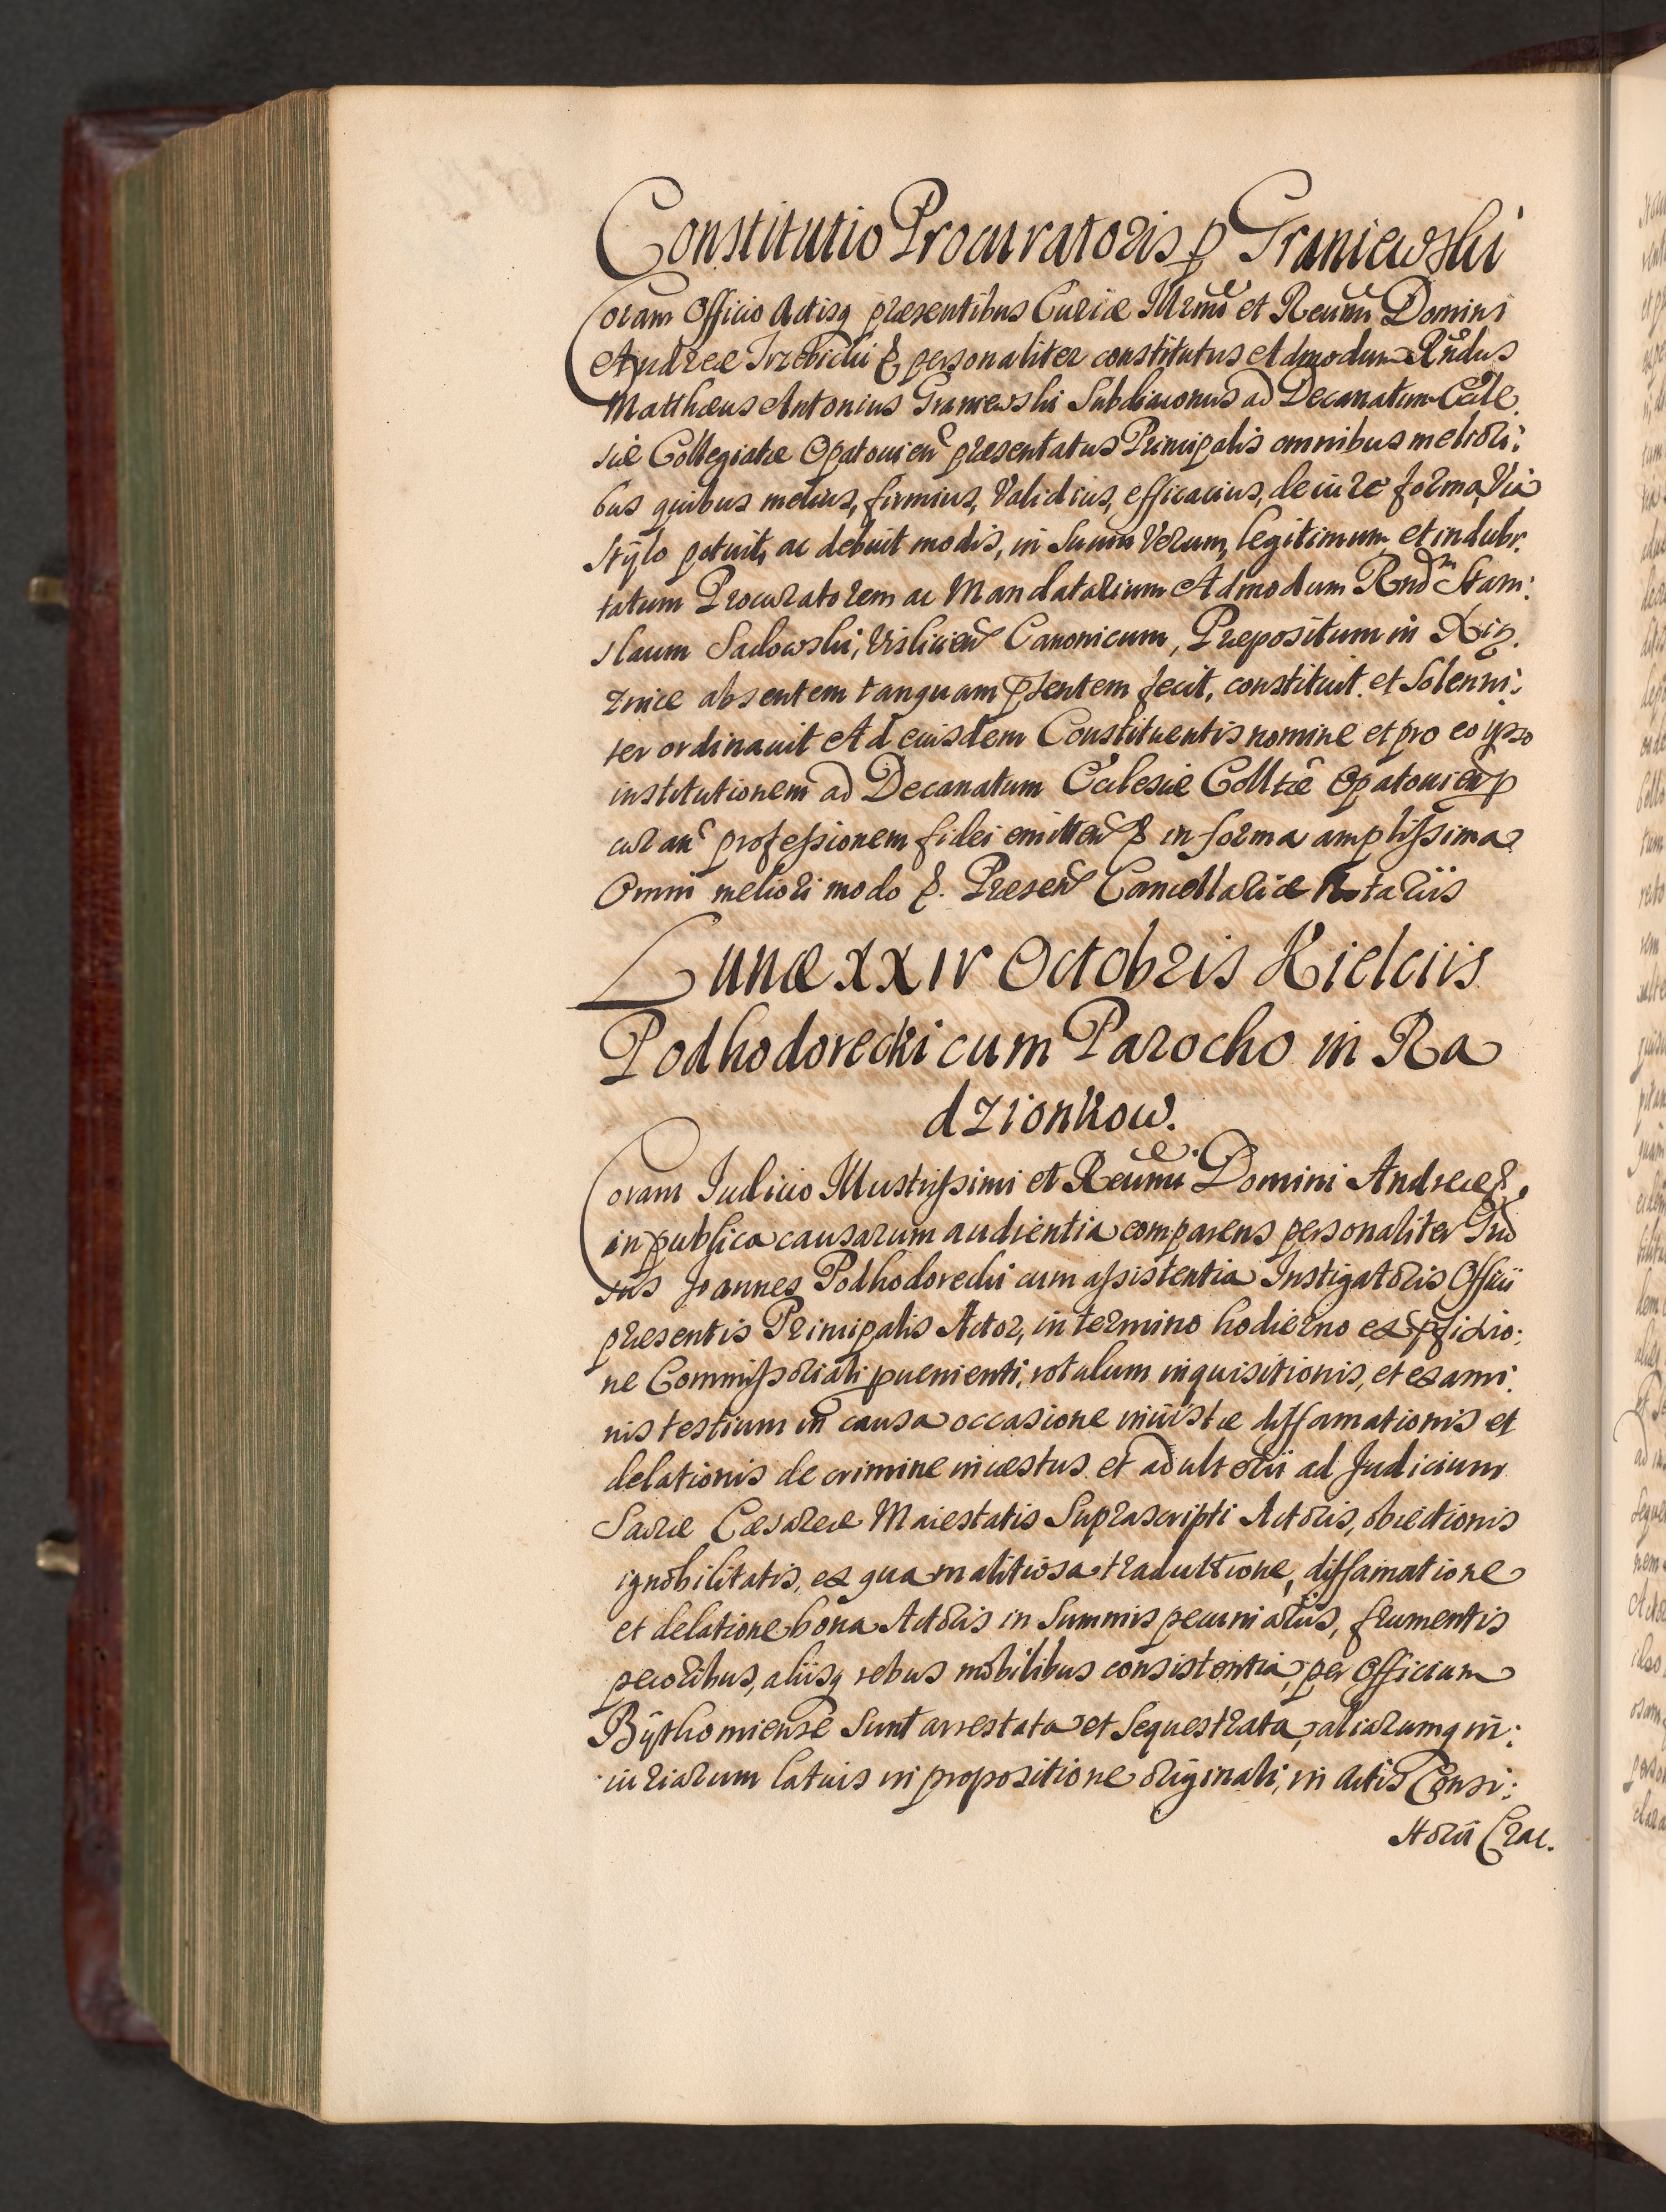 Constitutio Procuratoris p Graniewski
Coram Officio Actisq præsentibus Curiæ Illrmi et Reumi Domini
Andreæ Trzebicki & personaliter constitutus Admodum Rndus
Matthæus Antonius Graniewski Subdiaconus ad Decanatum Eccle
siæ Collegiatæ Opatouien præsentatus Principalis omnibus meliori:
bus quibus melius, firmius, Validius, efficacius, de iure forma, Via
stÿlo potuit, ac debuit modis, in Suum Verum, legitimum et indubi.
tatum Procuratorem ac Mandatarium Admodum Rndm Stani:
slaum Sadowski, Vislicien Canonicum, Præpositum in Xię.
znice absentem tanquam pńtem fecit, constituit et Solenni:
ter ordinauit Ad eiusdem Constituentis nomine et pro eo ipso
institutionem ad Decanatum Ecclesiæ Colltæ Opatouien p
curan professionem fidei emitten & in forma amplissima
Omni meliori modo &. Præsen Cancellariæ Notariis
Lunæ XXIV Octobris Kielciis
Podhodorecki cum Parocho in Ra
dzionkow.
Coram Iudicio Illustrissimi et Reumi Domini Andreæ &.
in publica causarum audientia comparens personaliter Gnd
sus Joannes Podhodorecki cum assistentia Instigatoris Officii
præsentis Principalis Actor, in termino hodierno ex pfixio:
ne Commissoriali puenienti, rotulum inquisitionis, et exami:
nis testium in causa occasione iniustæ diffamationis et
delationis de crimine incestus et adulterii ad Judicium
Sacræ Cæsareæ Maiestatis Suprascripti Actoris, obiectionis
ignobilitatis, ex qua malitiosa traductione, diffamatione
et delatione bona Actoris in Summis pecuniariis, frumentis
pecoribus, aliisq rebus mobilibus consistentia, per Officium
Bÿthomiense Sunt arrestata et Sequestrata, aliarumq in:
iuriarum latius in propositione originali, in Actis Consi:
storii Crac.